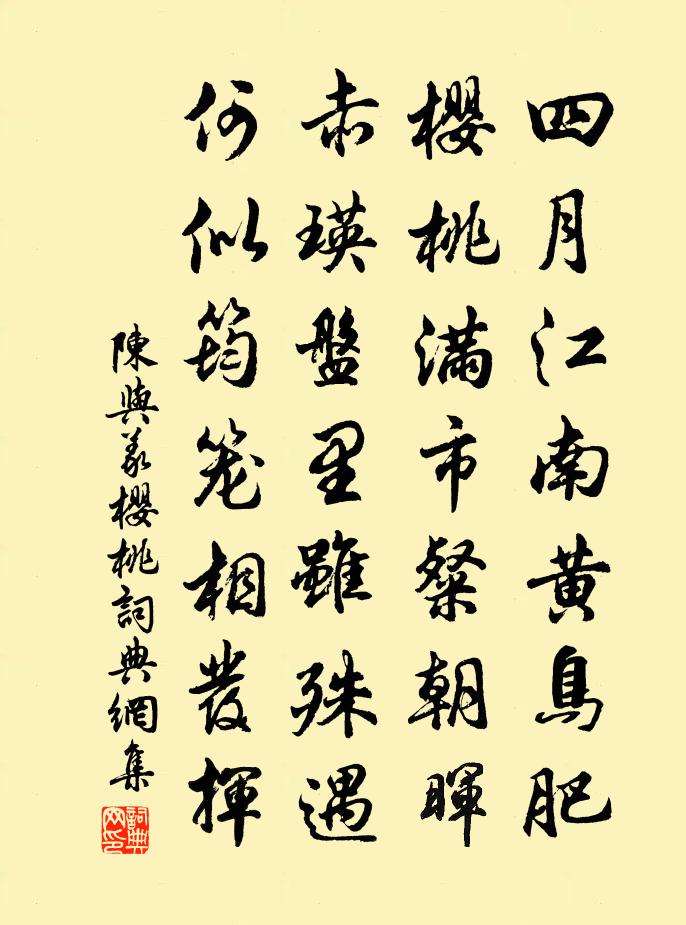 四月江南黃鳥肥
櫻桃滿市粲朝暉
赤瑛盤里雖殊遇
何似筠笼相發揮
陳與義櫻桃詞典網集
詞典网印